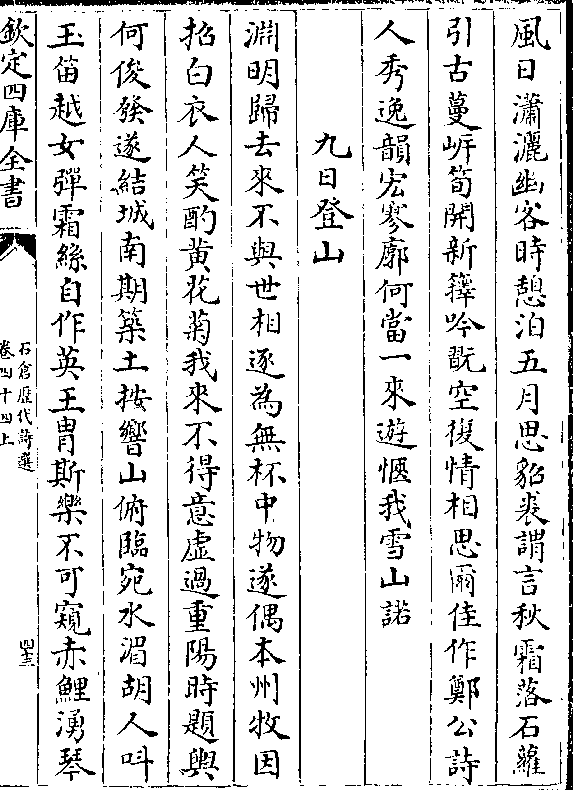 風日瀟灑幽客時憩泊五月思貂裘謂言秋霜落石蘿
引古蔓岍筍開新籜吟翫空復情相思爾佳作鄭公詩
人秀逸韻宏寥廓何當一來遊愜我雪山諾
九日登山
淵明歸去來不與世相逐為無杯中物遂偶本州牧因
招白衣人笑酌黄花菊我來不得意虛過重陽時題輿
何俊發遂結城南期築土按響山俯臨宛水湄胡人叫
玉笛越女彈霜絲自作英王胄斯樂不可窺赤鯉湧琴
欽定四庫全書
石倉歷代詩選
卷四十四上
四十三